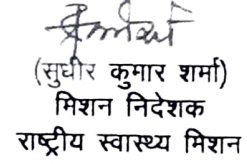 (सुधीर कुमार शर्मा)
मिशन निदेशक
राष्ट्रीय स्वास्थ्य मिशन